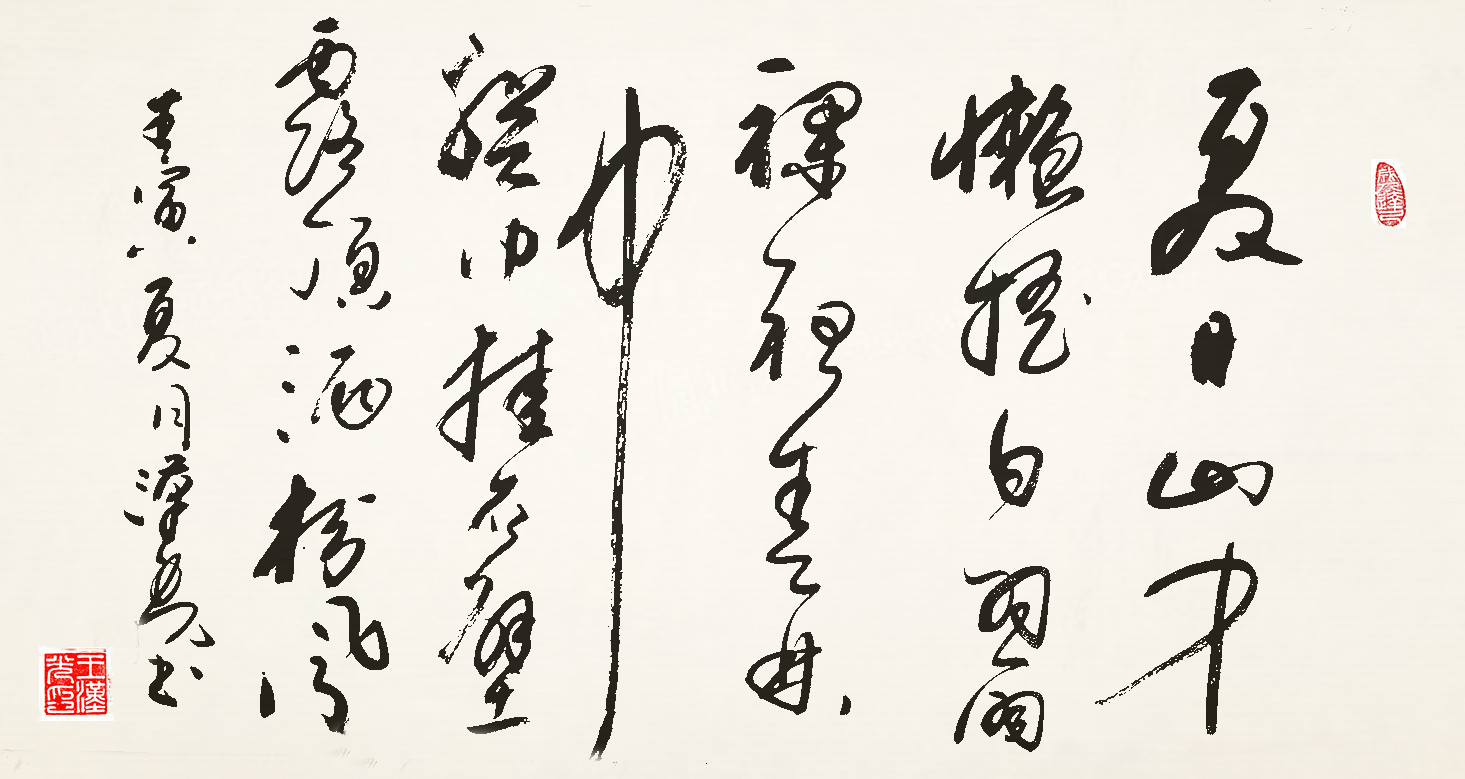 夏日山中
懶搖白羽扇
裸袒青林
中
脫巾挂石壁
露頂洒松風
壬寅夏月漢光書
王漢光印